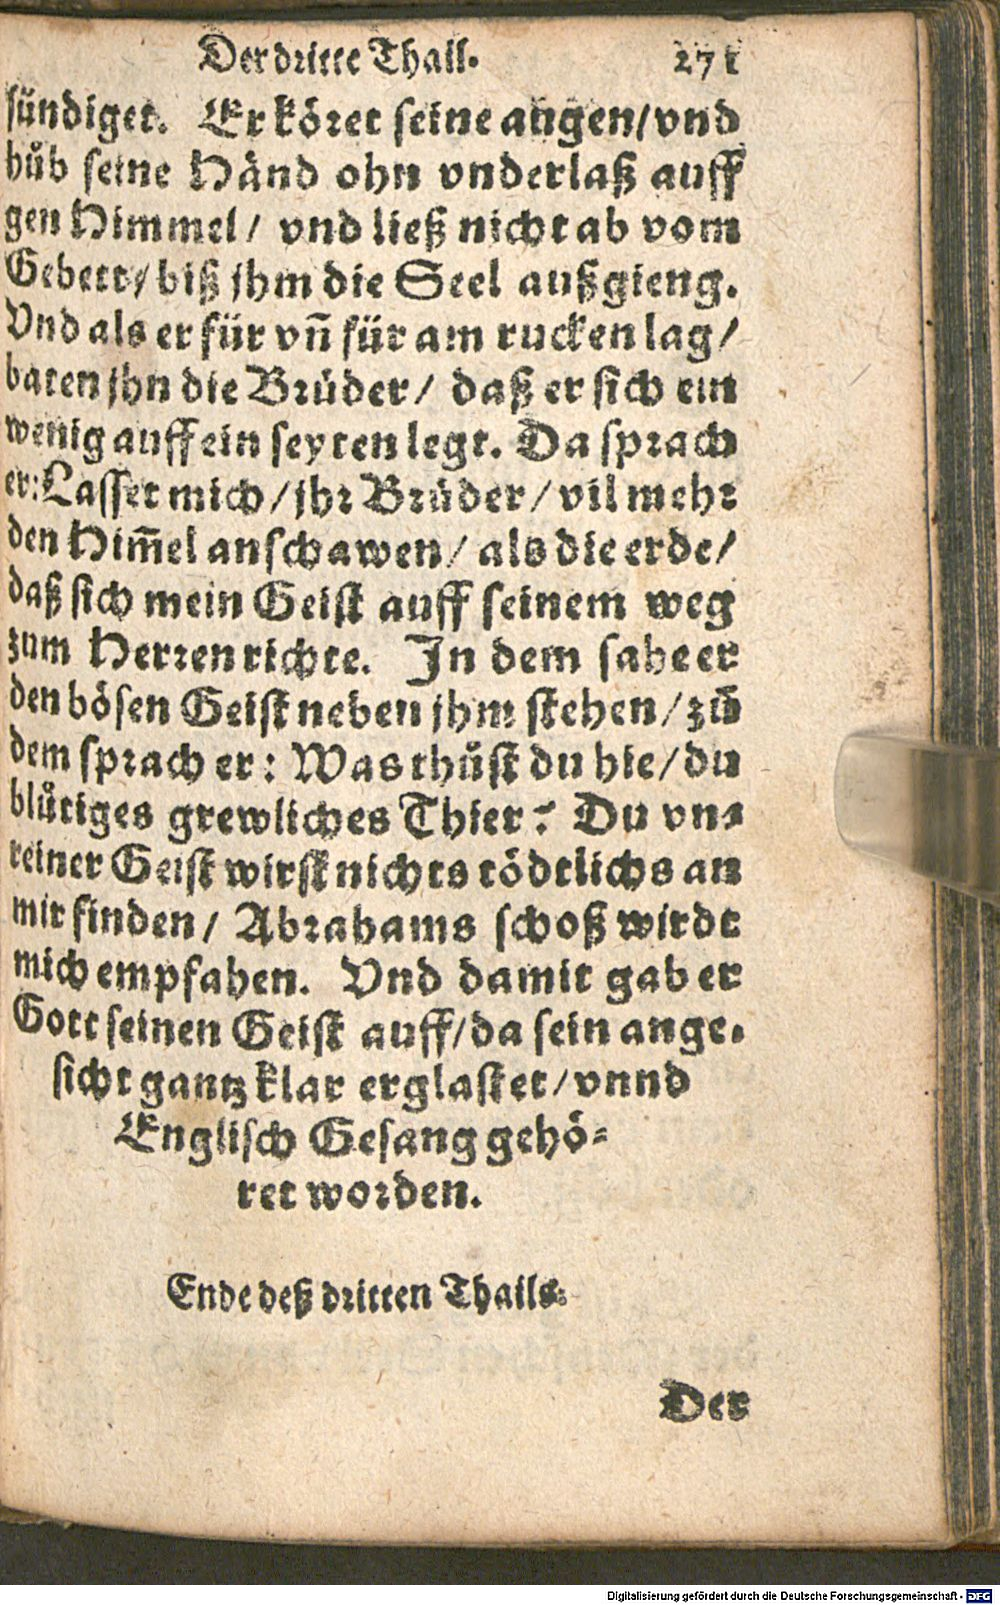 Der dritte Thail. 271
sündiget. Er köret seine augen/vnd
hůb seine Händ ohn vnderlaß auff
gen Himmel/ vnd ließ nicht ab vom
Gebett/ biß jhm die Seel außgieng.
Vnd als er für vñ für am rucken lag/
baten jhn die Brüder/ daß er sich ein
wenig auff ein seyten legt. Da sprach
er: Lasset mich/ jhr Brüder/ vil mehr
den Him̃el anschawen/ als die erde/
daß sich mein Geist auff seinem weg
zum Herren richte. In dem sahe er
den bösen Geist neben jhm stehen/ zů
dem sprach er: Was thůst du hie/ du
blůtiges grewliches Thier? Du vn⸗
reiner Geist wirst nichts tödtlichs an
mir finden/ Abrahams schoß wirdt
mich empfahen. Vnd damit gab er
Gott seinen Geist auff/ da sein ange⸗
sicht gantz klar erglastet/ vnnd
Englisch Gesang gehö⸗
ret worden.
Ende deß dritten Thails.
Der
Digitalisierung gefördert durch die Deutsche Forschungsgemeinschaft - DFG